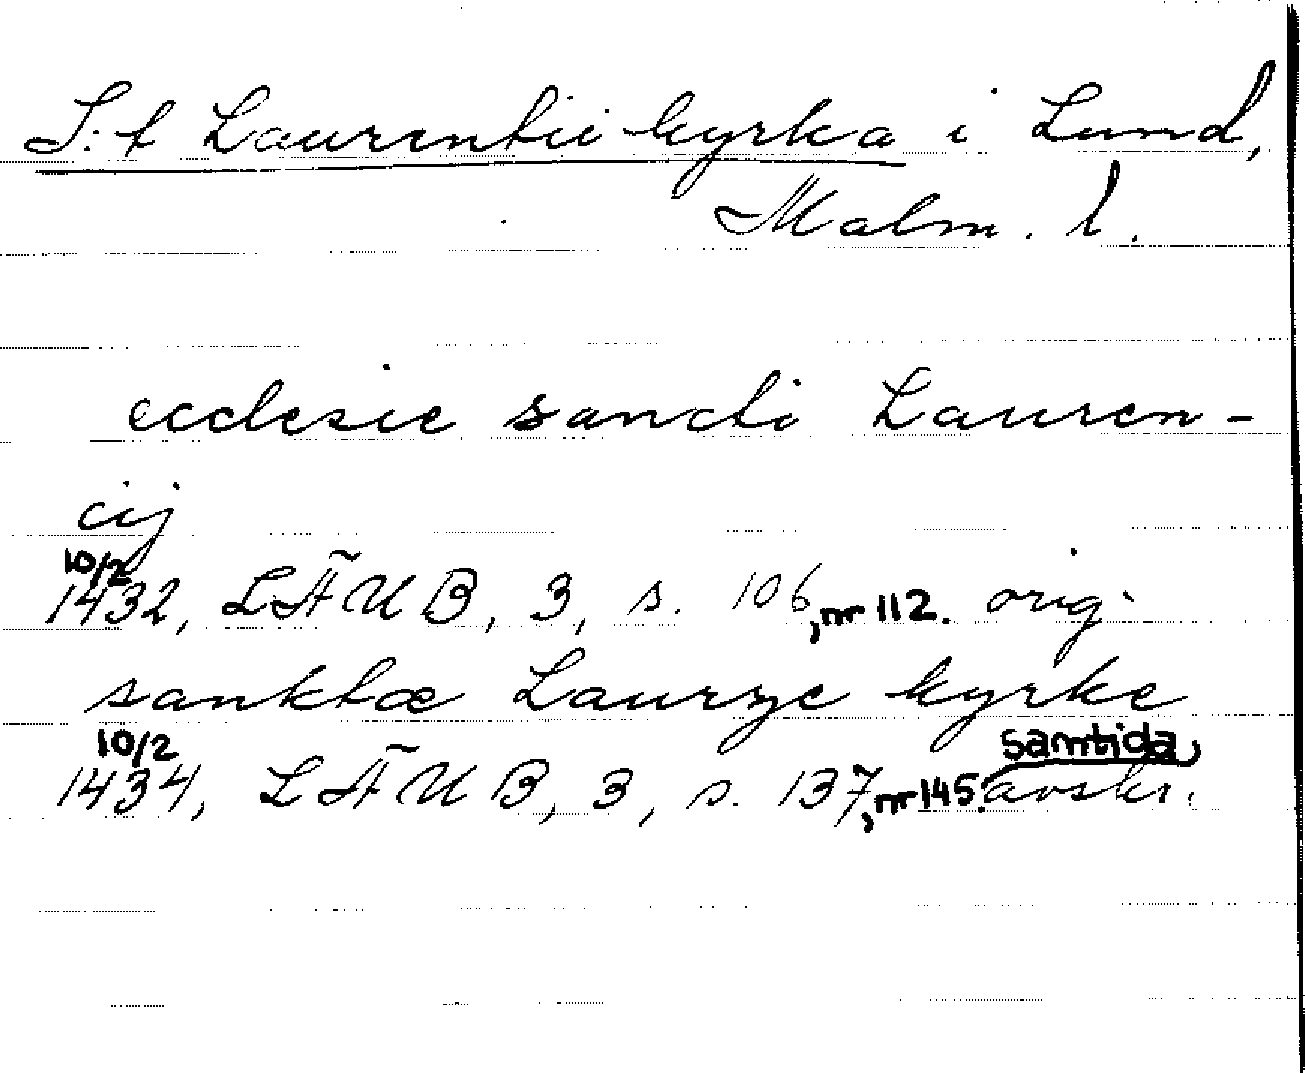 S:t Laurentii kyrka i Lund,
Malm. l.
ecclesie sancti Lauren-
cij
10/2
1432, LÄUB, 3, s. 106, nr 112. orig.
sanktæ Laurye kyrke
10/2 samtida
1434, LÄUB, 3, s. 137, nr 145. avskr.